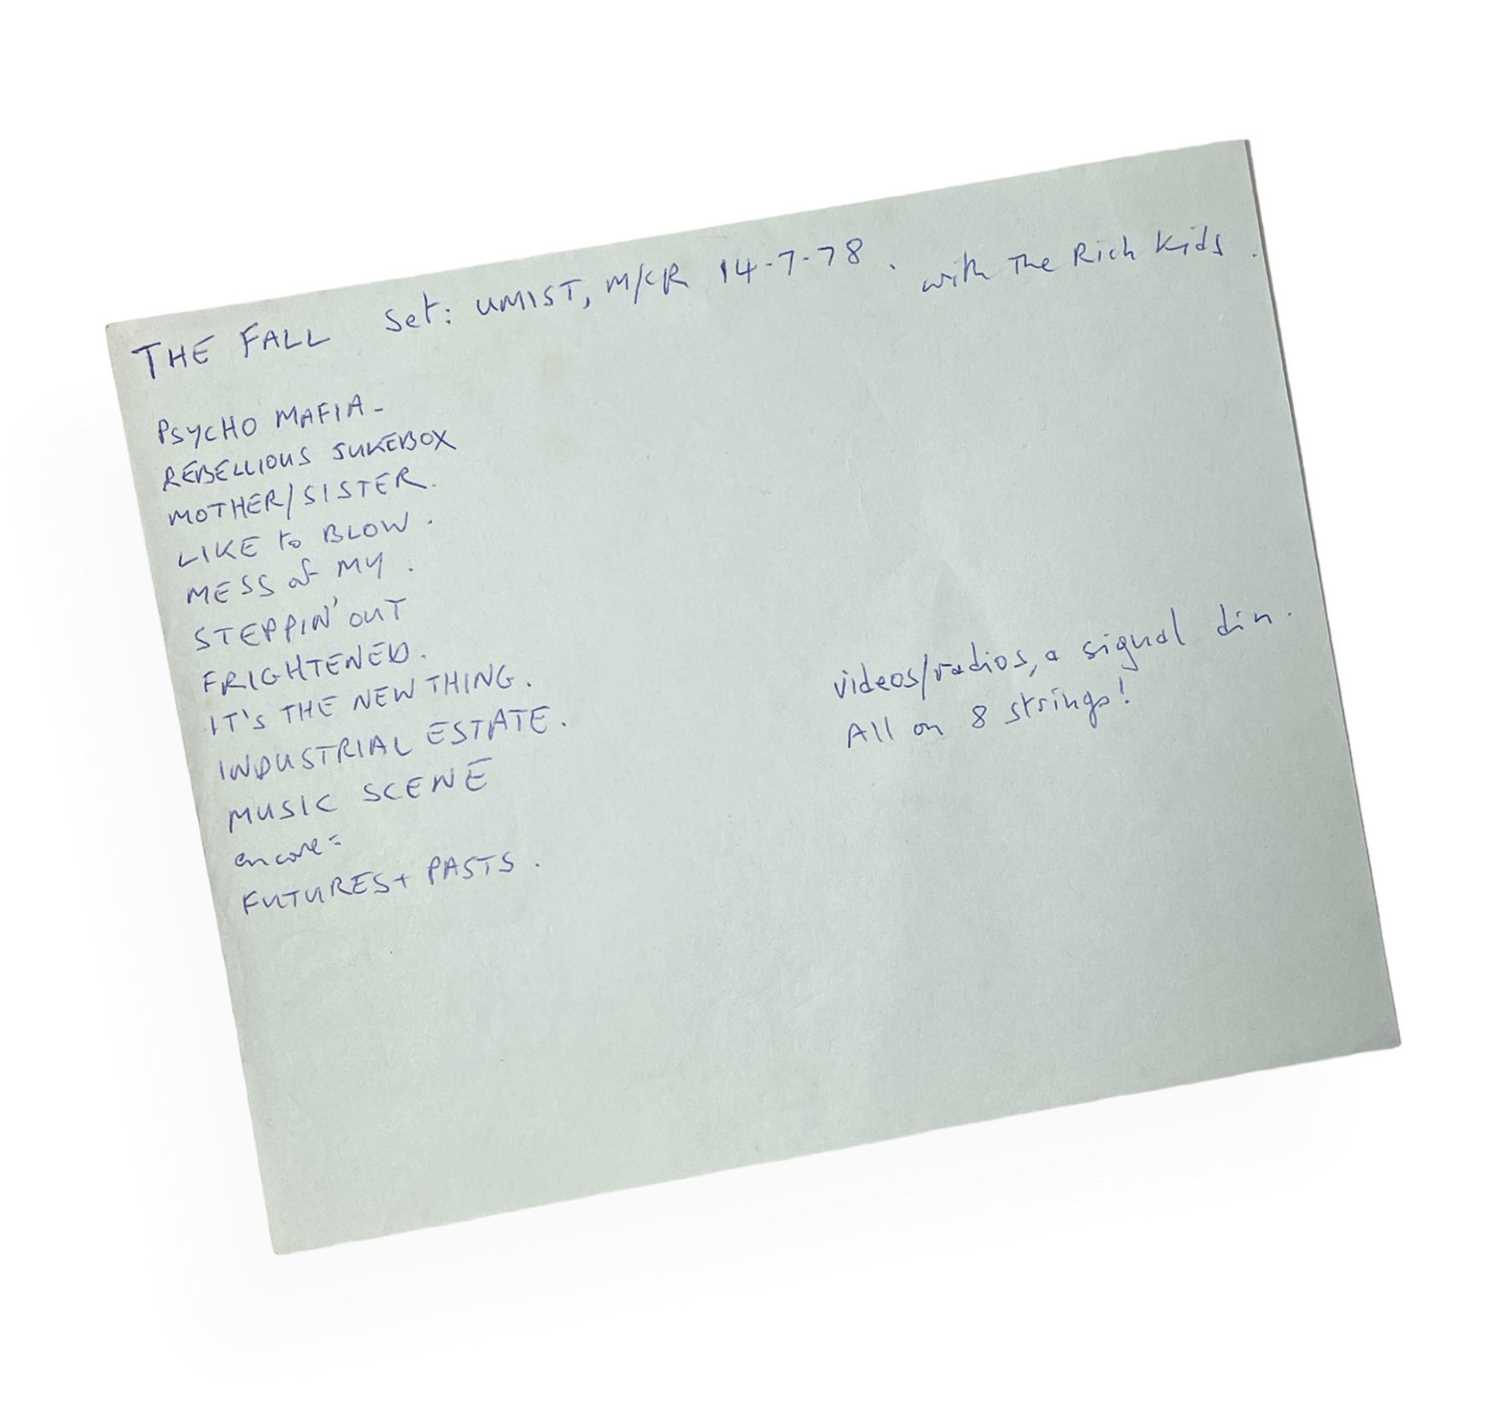 THE FALL Set: UMIST, M/CR 14-7-78. with The Rich Kids.
PSYCHO MAFIA-
REBELLIOUS JUKEBOX
MOTHER/SISTER.
LIKE to BLOW.
MESS of MY.
STEPPIN' OUT
FRIGHTENED.
IT'S THE NEW THING.
INDUSTRIAL ESTATE.
MUSIC SCENE
encore=
FUTURES + PASTS.
videos/radios, a signal din.
All on 8 strings!